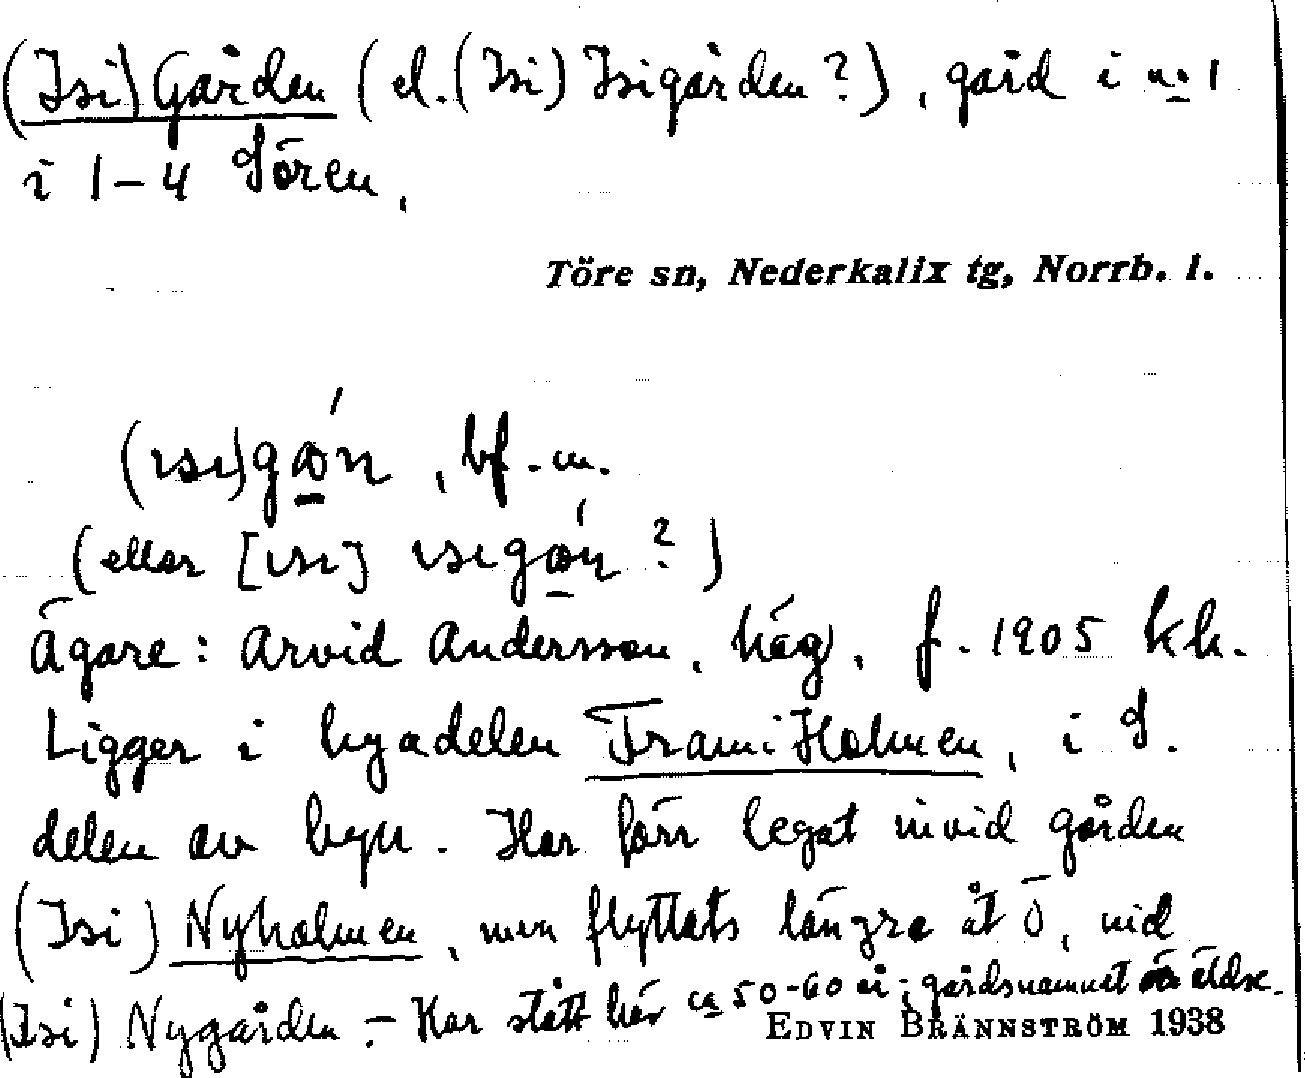 (Isi) Gården (el. (Isi) Isigården?), gård i nr 1
i 1–4 Sören.
Töre sn, Nederkalix tg, Norrb. l.
, bf. m.
(eller [ısı] ?)
Ägare: Arvid Andersson, häg, f. 1905 kh.
Ligger i byadelen Frami Holmen, i S.
delen av byn. Har förr legat invid gården
(Isi) Nyholmen, men flyttats längre åt Ö, vid
(Isi) Nygården. – Har stått här ca 50-60 år; gårdsnamnet är äldre.
EDVIN BRÄNNSTRÖM 1938